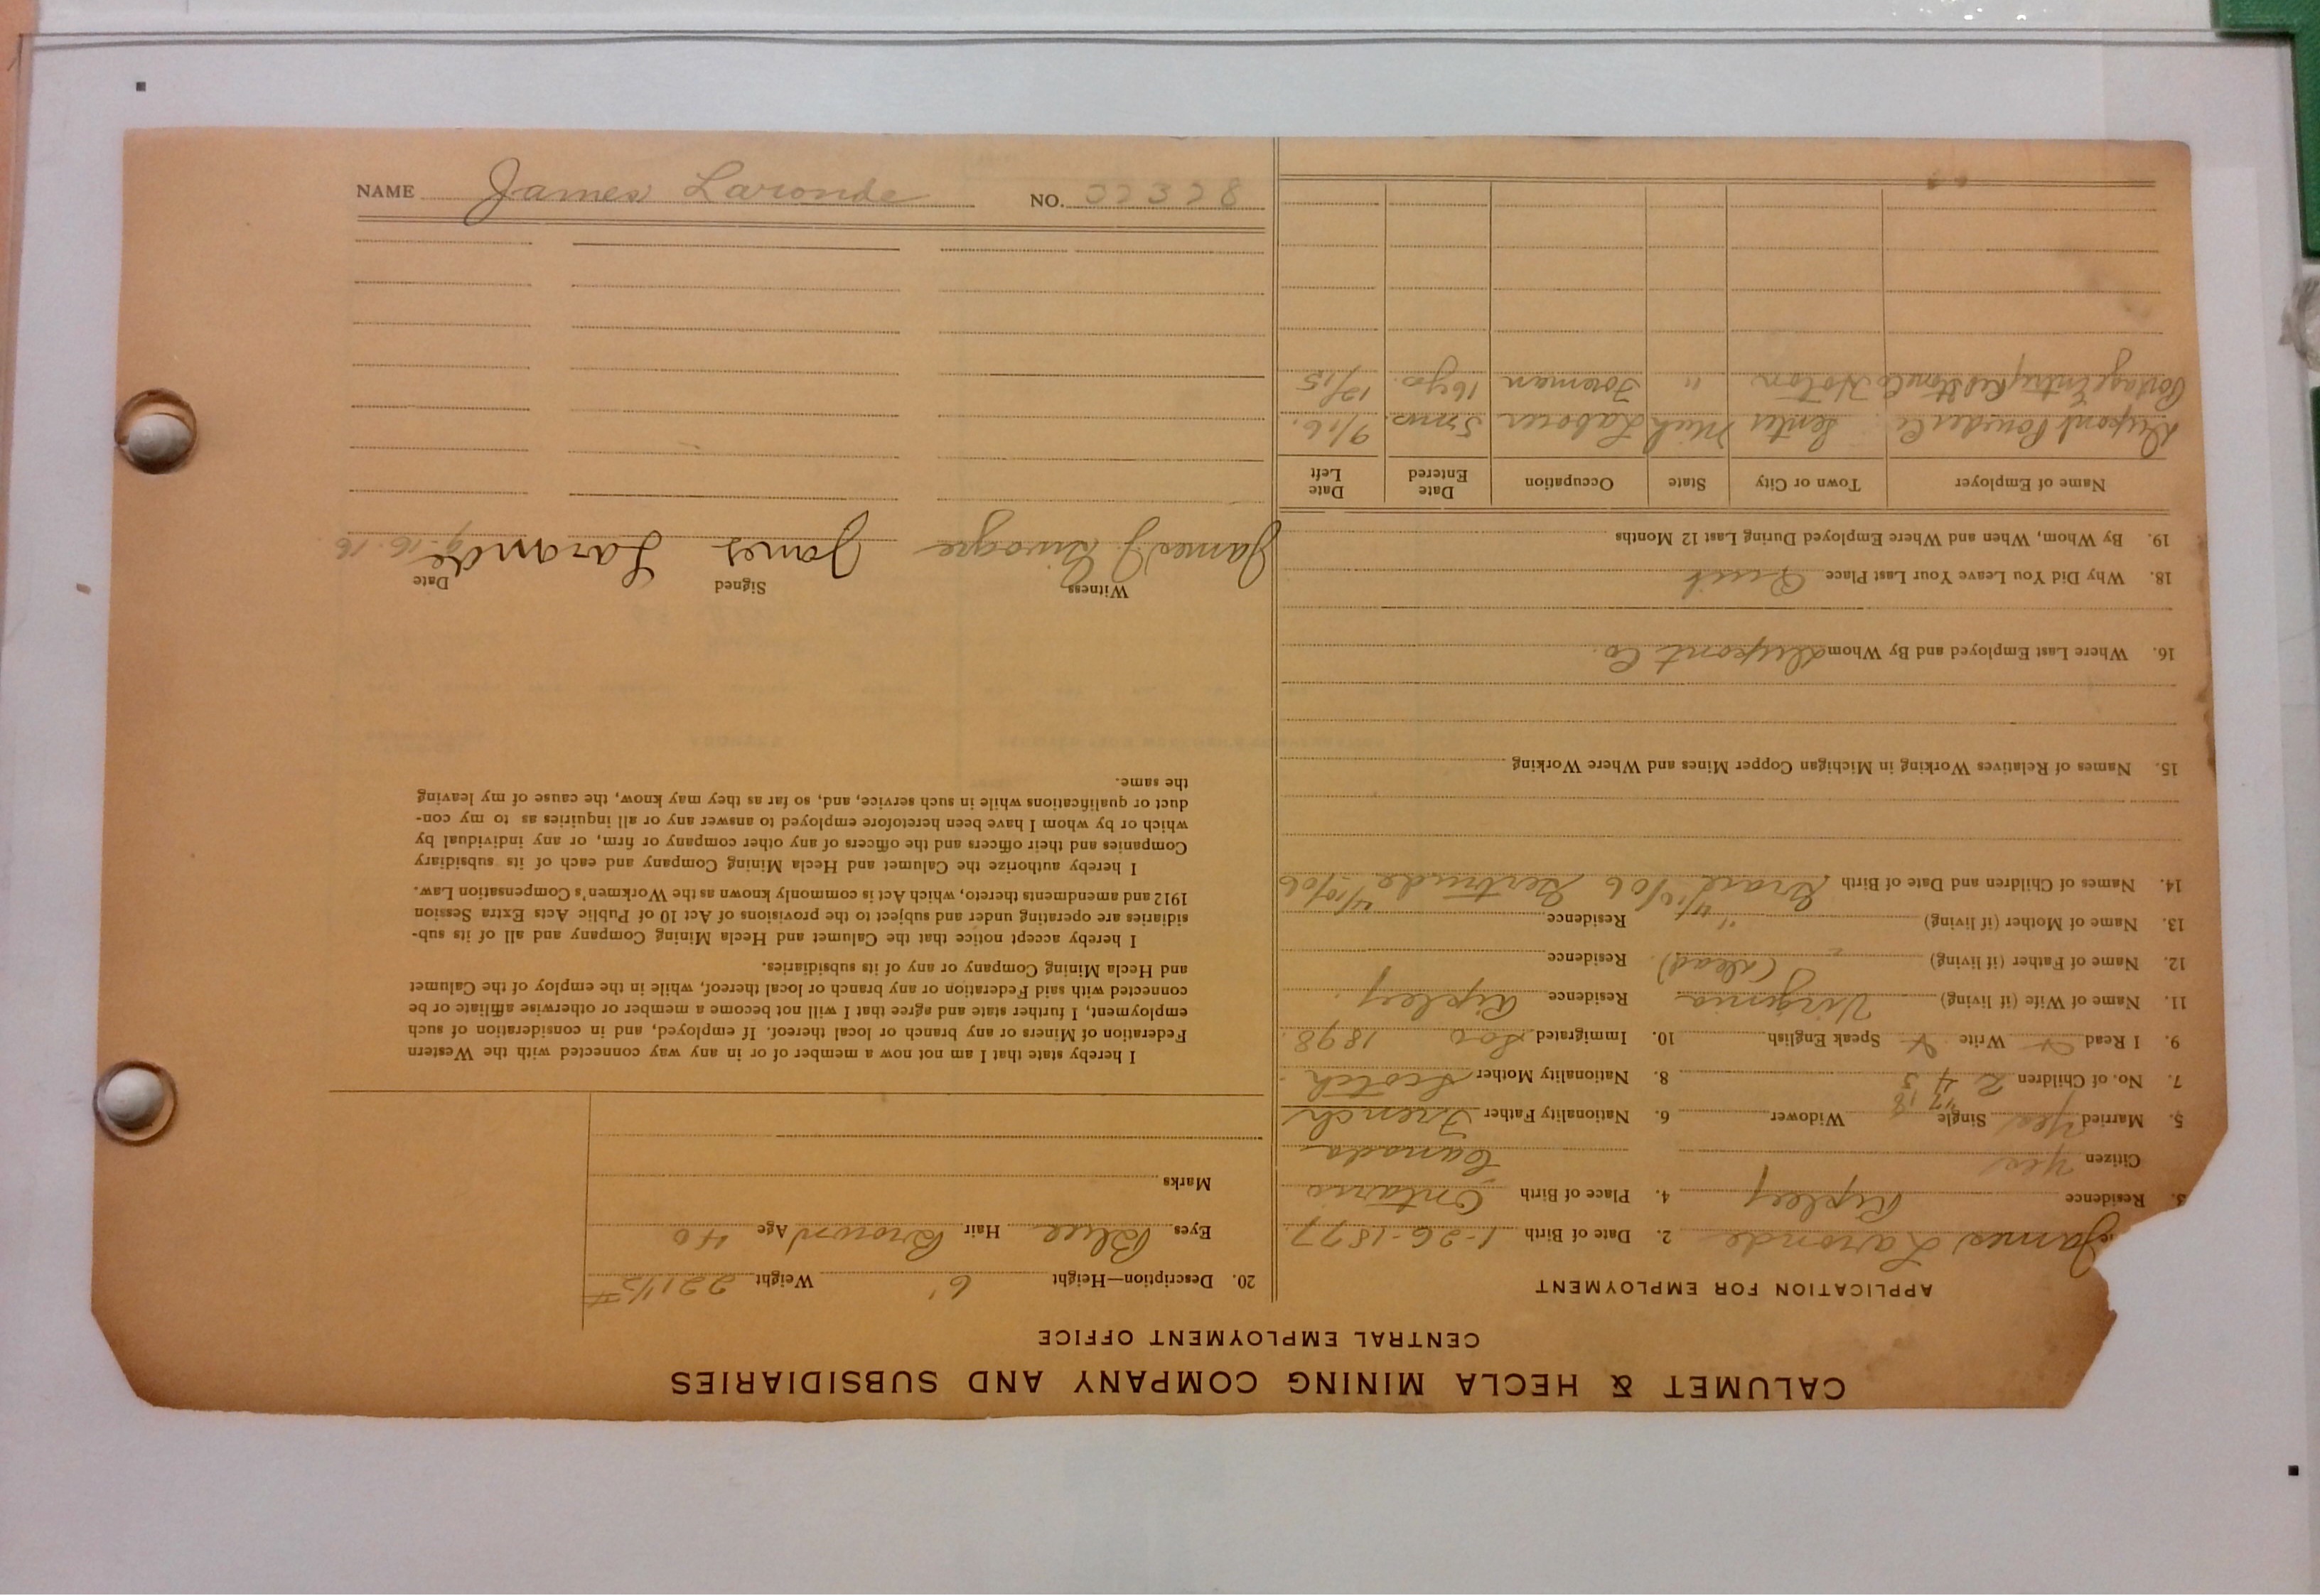 CALUMET & HECLA MINING COMPANY AND SUBSIDIARIES
CENTRAL EMPLOYMENT OFFICE
APPLICATION FOR EMPLOYMENT
James Laronde 2. Date of Birth 1-26-1877
3. Residence Ripley 4. Place of Birth Ontario
Citizen Yes Canada
5. Married Yes Single Widower 6. Nationality Father French
7. No. of Children 2 8. Nationality Mother Scotch
9. I Read Write Speak English 10. Immigrated Soo 1898
11. Name of Wife (if living) Virginia Residence Ripley
12. Name of Father (if living) (dead) Residence
13. Name of Mother (if living) " Residence
14. Names of Children and Date of Birth Gertrude 4/10/06
15. Names of Relatives Working in Michigan Copper Mines and Where Working
16. Where Last Employed and By Whom Dupont Co.
18. Why Did You Leave Your Last Place Quit
19. By Whom, When and Where Employed During Last 12 Months
Name of Employer Town or City State Occupation Date Entered Date Left
Dupont Powder Co. Senter Mich Laborer 5 mos. 9/16.
Portage Entry Redstone Co Hoton " Foreman 16 yrs. 12/15
20. Description—Height 6' Weight 221 1/2 #
Eyes Blue Hair Brown Age 40
Marks
I hereby state that I am not now a member of or in any way connected with the Western
Federation of Miners or any branch or local thereof. If employed, and in consideration of such
employment, I further state and agree that I will not become a member or otherwise affiliate or be
connected with said Federation or any branch or local thereof, while in the employ of the Calumet
and Hecla Mining Company or any of its subsidiaries.
I hereby accept notice that the Calumet and Hecla Mining Company and all of its sub-
sidiaries are operating under and subject to the provisions of Act 10 of Public Acts Extra Session
1912 and amendments thereto, which Act is commonly known as the Workmen's Compensation Law.
I hereby authorize the Calumet and Hecla Mining Company and each of its subsidiary
Companies and their officers and the officers of any other company or firm, or any individual by
which or by whom I have been heretofore employed to answer any or all inquiries as to my con-
duct or qualifications while in such service, and, so far as they may know, the cause of my leaving
the same.
Witness Signed Date
James J. James Laronde 9-16-16
NAME James Laronde NO. 22328